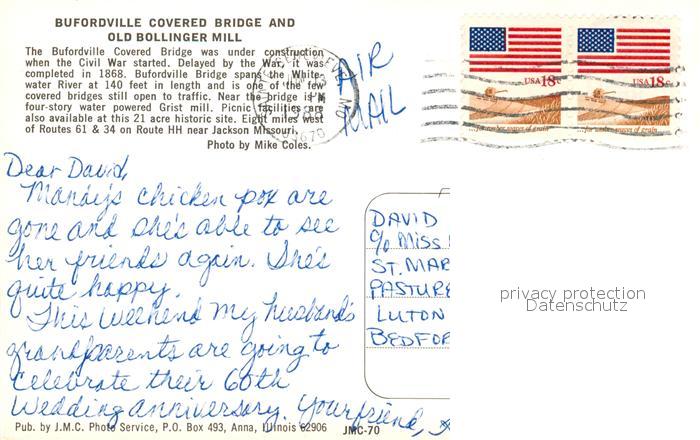 BUFORDVILLE COVERED BRIDGE AND
OLD BOLLINGER MILL
The Bufordville Covered Bridge was under construction
when the Civil War started. Delayed by the War, it was
completed in 1868. Bufordville Bridge spans the White-
water River at 140 feet in length and is one of the few
covered bridges still open to traffic. Near the bridge is a
four-story water powered Grist mill. Picnic facilities are
also available at this 21 acre historic site. Eight miles west
of Routes 61 & 34 on Route HH near Jackson Missouri.
Photo by Mike Coles.
AIR
MAIL
PM
MO
63670
USA 18c
USA 18c
...for amber waves of grain
...for amber waves of grain
Dear David,
Mandy's chicken pox are
gone and she's able to see
her friends again. She's
quite happy.
This weekend my husband's
grandparents are going to
celebrate their 60th
Wedding anniversary. Your friend,
DAVID
c/o Miss
ST. MAR
PASTURE
LUTON
BEDFOR
privacy protection
Datenschutz
Pub. by J.M.C. Photo Service, P.O. Box 493, Anna, Illinois 62906 JMC-70